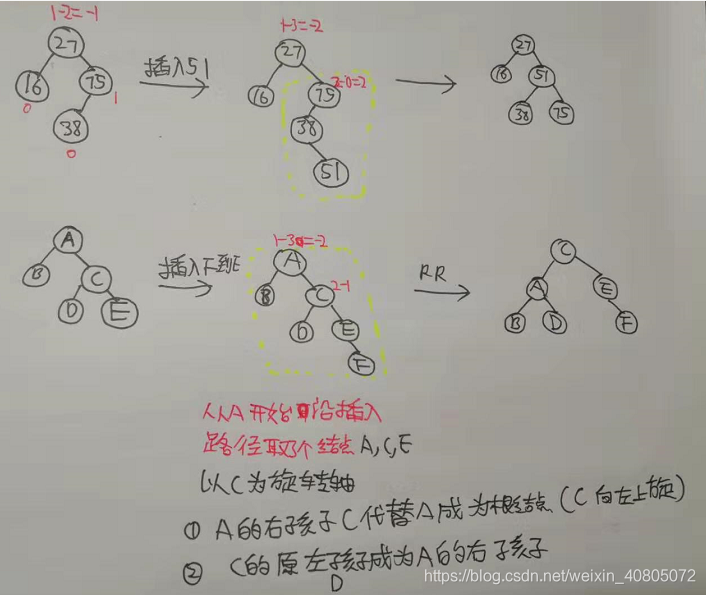 1-2=-1
27
16
75
0
1
38
0
插入51
1-3=-2
27
16
75
2-0=2
38
51
27
16
51
38
75
A
B
C
D
E
插入F到E
1-3=-2
A
B
C
2-1
D
E
F
RR
C
A
E
B
D
F
从A开始沿插入
路径取3个结点A,C,E
以C为旋转轴
① A的右孩子C代替A成为根结点(C向左上旋)
② C的原左孩子成为A的右子孩子
D
https://blog.csdn.net/weixin_40805072